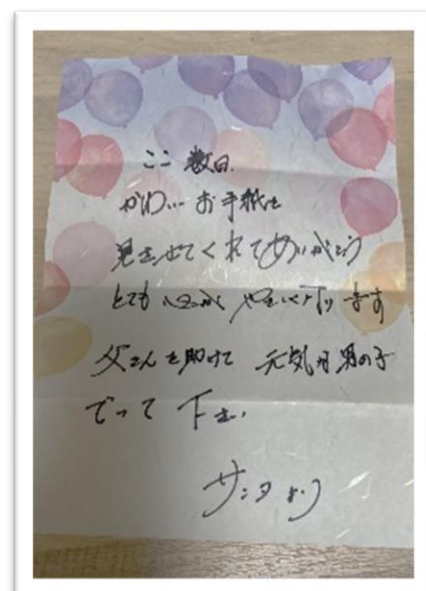 ここ数日
かわいいお手紙を
見させてくれてありがとう
とても心がやさしく下ります
父さんを助けて 元気な男の子
でって下さい
サンタより